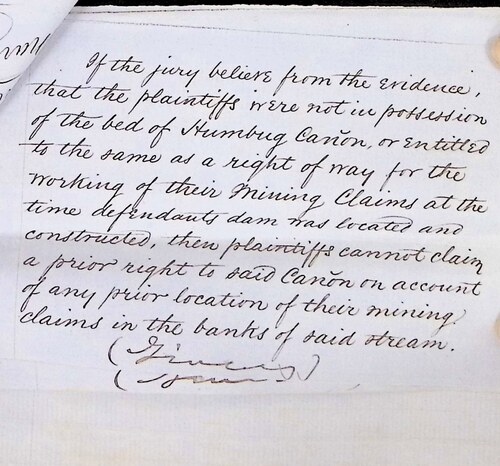 If the jury believe from the evidence,
that the plaintiffs were not in possession
of the bed of Humbug Cañon, or entitled
to the same as a right of way for the
working of their Mining Claims at the
time defendants dam was located and
constructed, then plaintiffs cannot claim
a prior right to said Cañon on account
of any prior location of their mining
claims in the banks of said stream.
(Given)